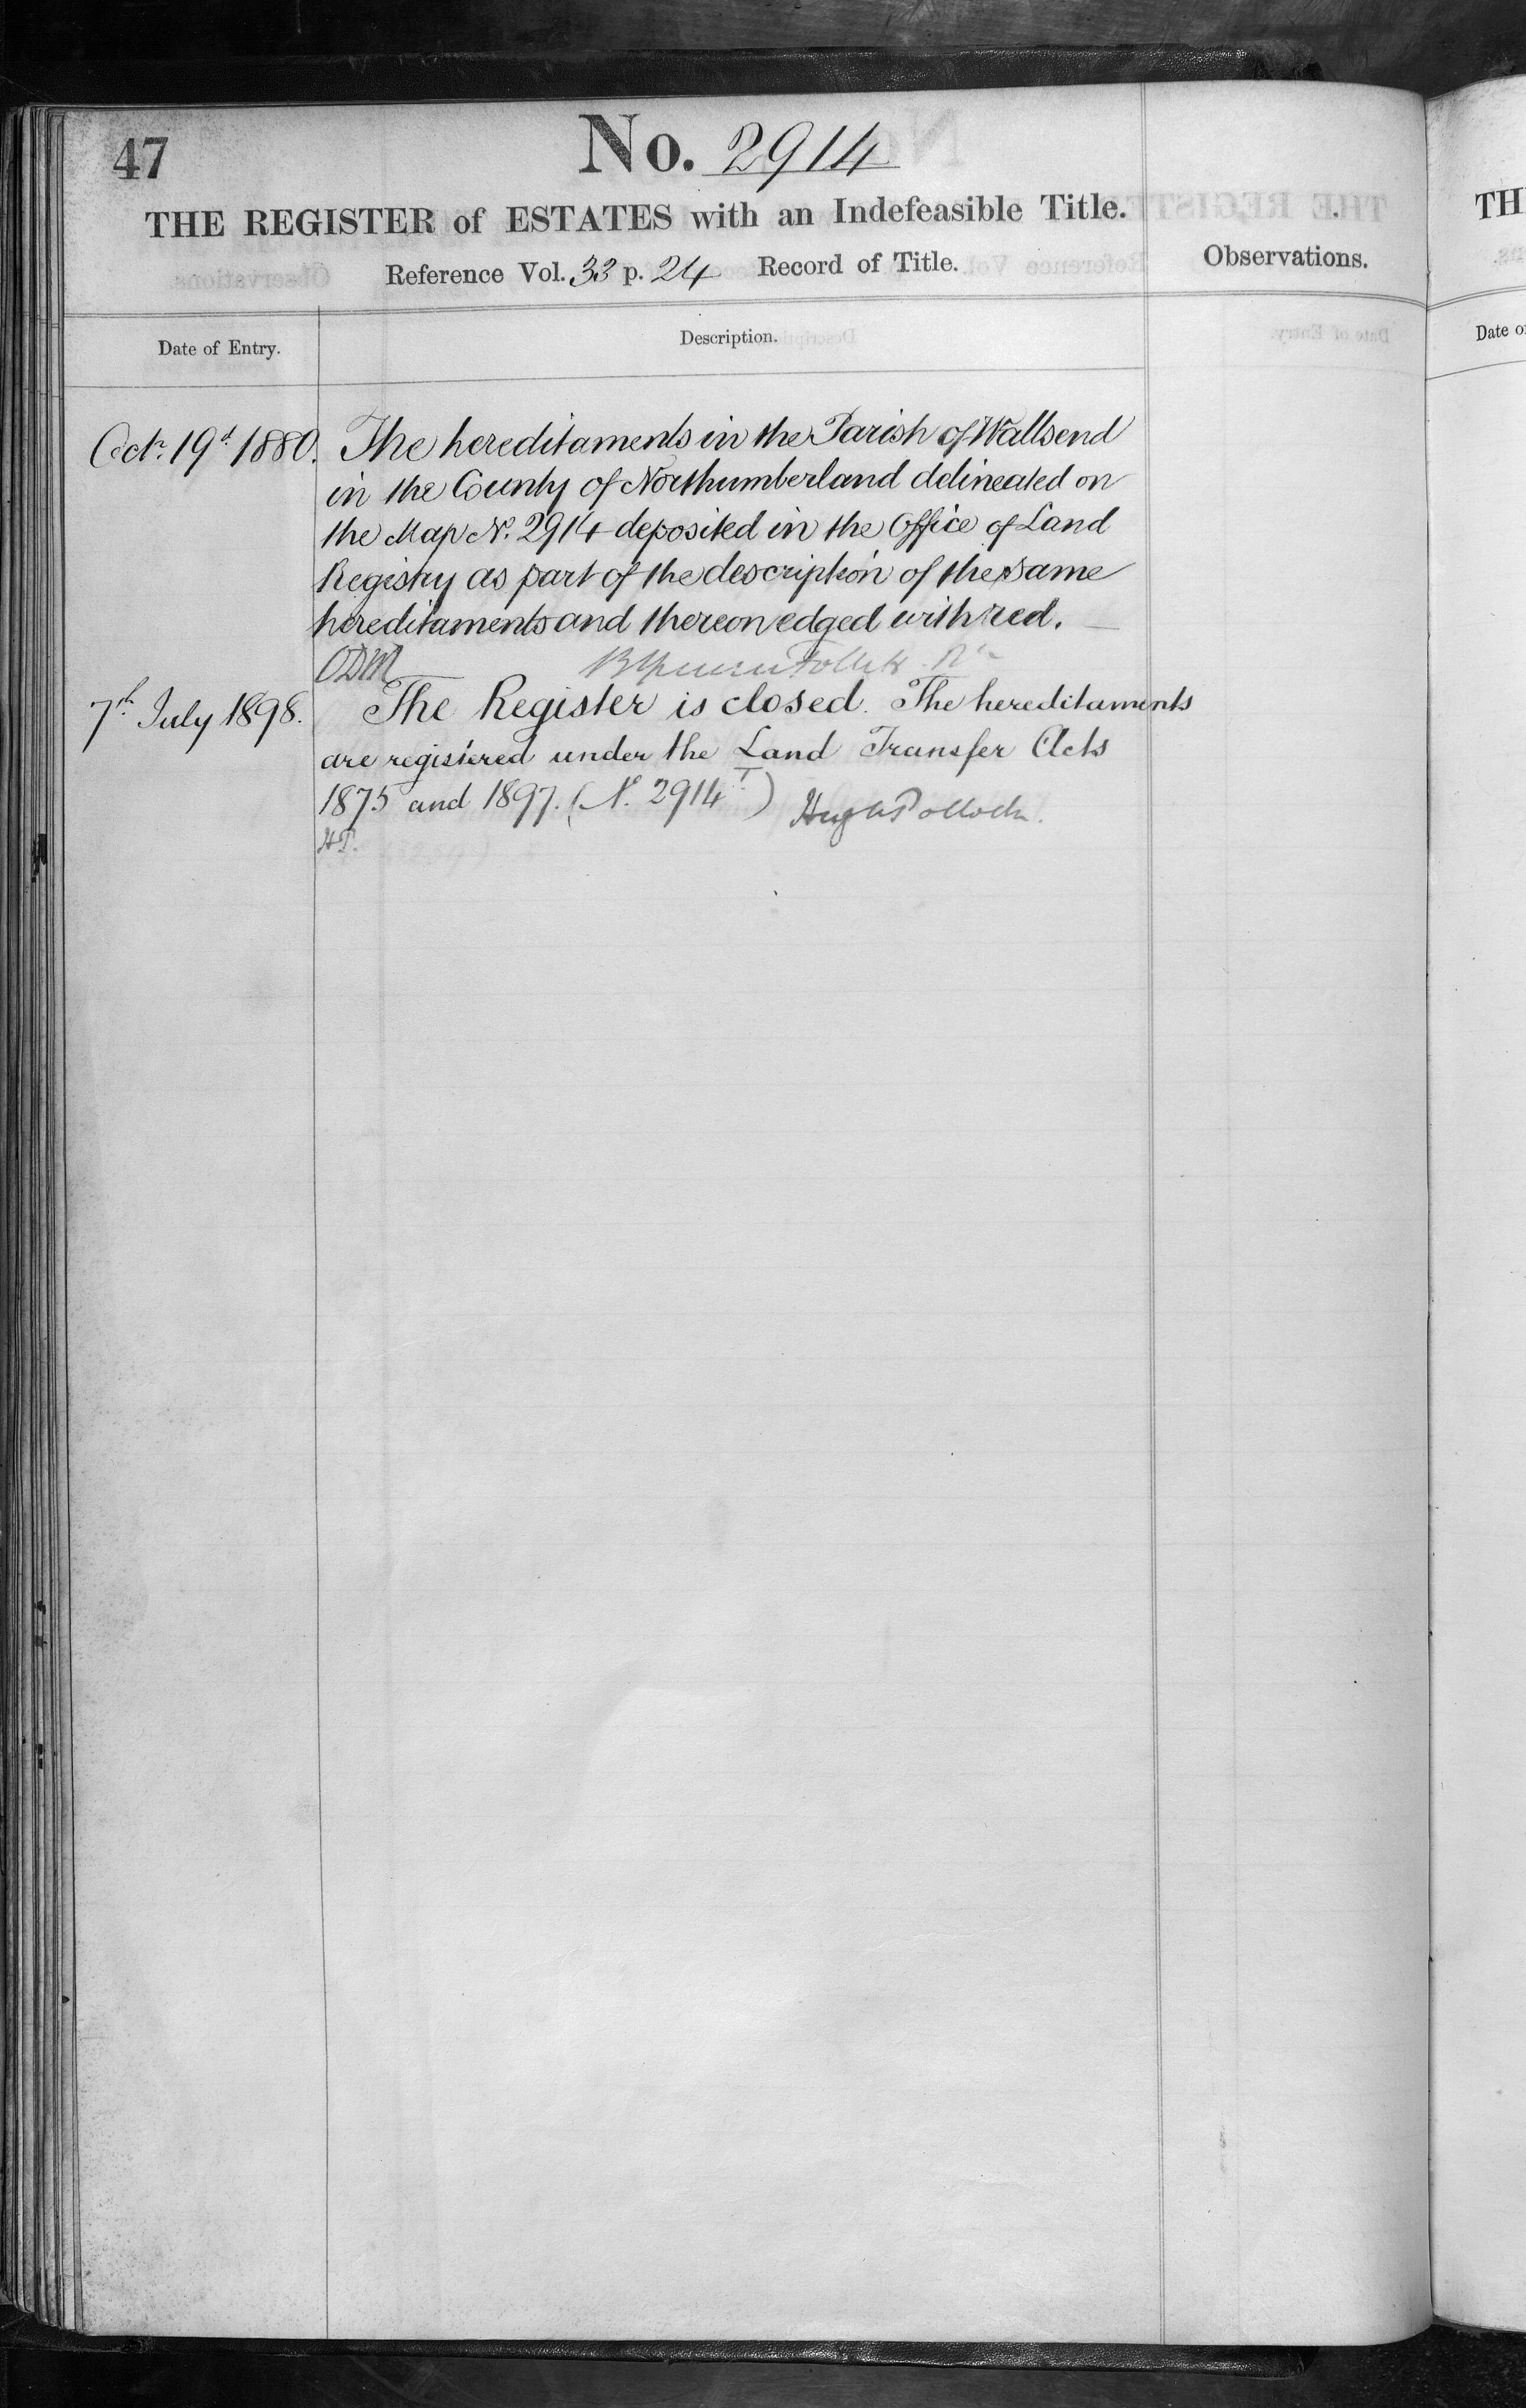 47
No. 2914
THE REGISTER of ESTATES with an Indefeasible Title.
Reference Vol. 33 p. 24 Record of Title.
Observations.
Date of Entry.
Description.
Octr. 19th 1880. The hereditaments in the Parish of Wallsend
in the County of Northumberland delineated on
the Map No. 2914 deposited in the Office of Land
Registry as part of the description of the same
hereditaments and thereon edged with red.
ODM
7th July 1898. The Register is closed. The hereditaments
are registered under the Land Transfer Acts
1875 and 1897. (No. 2914 I) Hugh Pollock.
HP.
TH
Date o